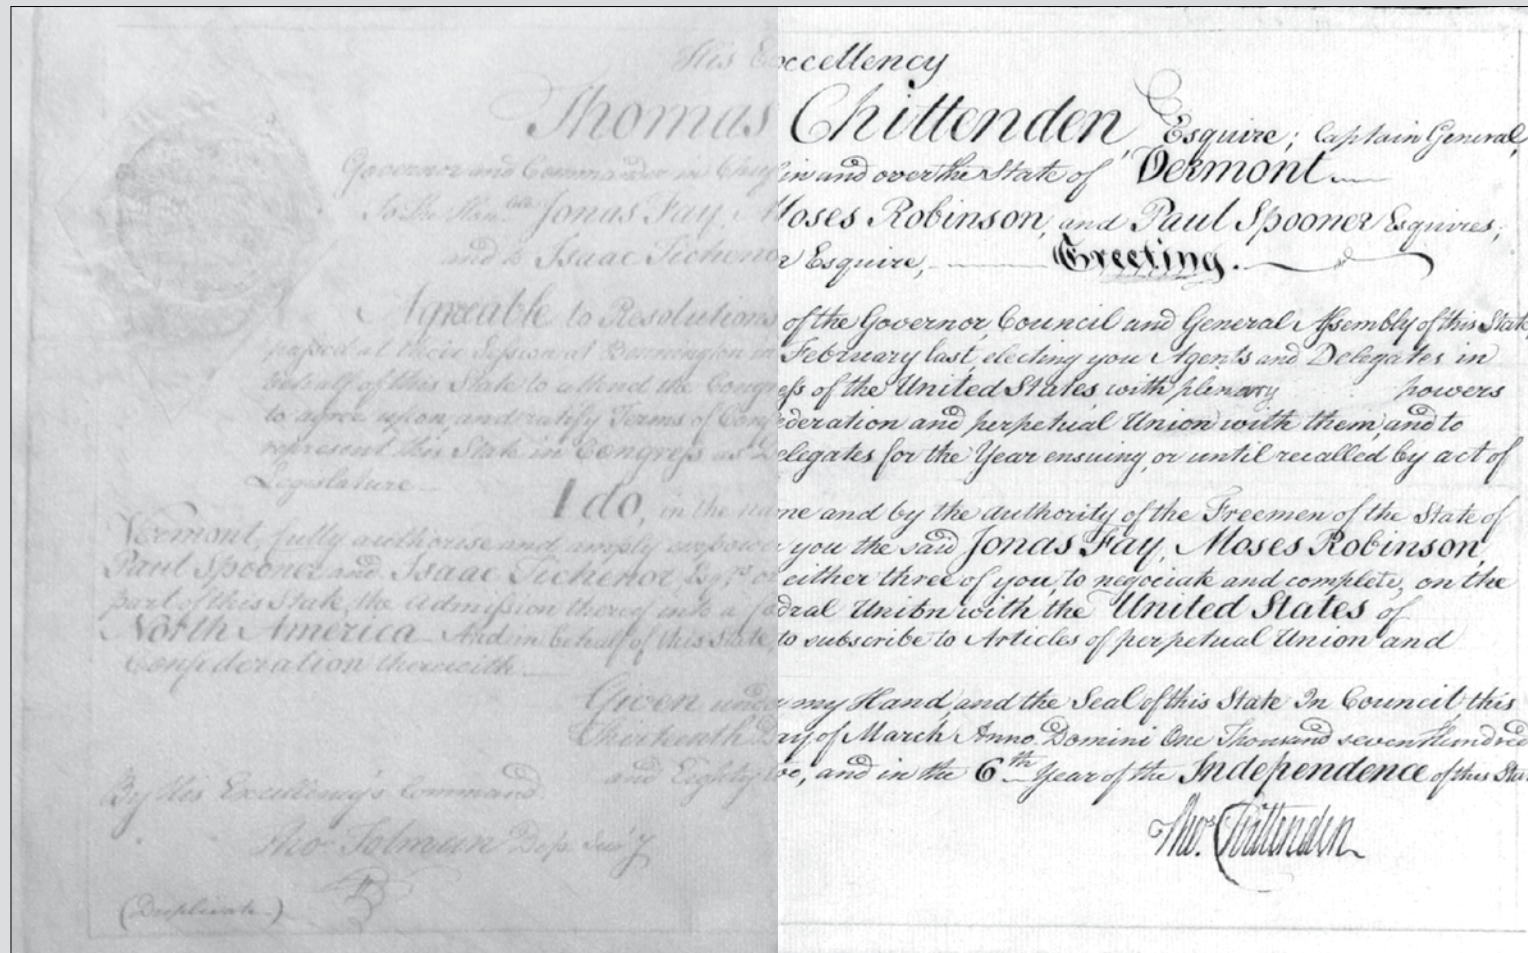 His Excellency
Thomas Chittenden, Esquire; Captain General,
Governor and Commander in Chief in and over the State of Vermont.
To the Hon.ble Jonas Fay, Moses Robinson, and Paul Spooner Esquires;
and to Isaac Tichenor Esquire, Greeting.
Agreable to Resolutions of the Governor, Council and General Assembly of this State
passed at their Session at Bennington in February last, electing you Agents and Delegates in
behalf of this State to attend the Congress of the United States with plenary powers
to agree upon and ratify Terms of Confederation and perpetual Union with them, and to
represent this State in Congress as Delegates for the Year ensuing, or until recalled by act of
Legislature
I do, in the name and by the authority of the Freemen of the State of
Vermont, fully authorise and amply empower you the said Jonas Fay, Moses Robinson,
Paul Spooner and Isaac Tichenor Esq.rs or either three of you, to negociate and complete, on the
part of this State, the Admission thereof into a fœdral Union with the United States of
North America And in behalf of this State, to subscribe to Articles of perpetual Union and
Confederation therewith
Given under my Hand, and the Seal of this State In Council, this
Thirteenth Day of March Anno. Domini One Thousand seven Hundred
and Eighty two, and in the 6th Year of the Independence of this State
Tho.s Chittenden
By His Excellency's Command.
Tho.s Tolman Dep. Sec'y
(Duplicate.)